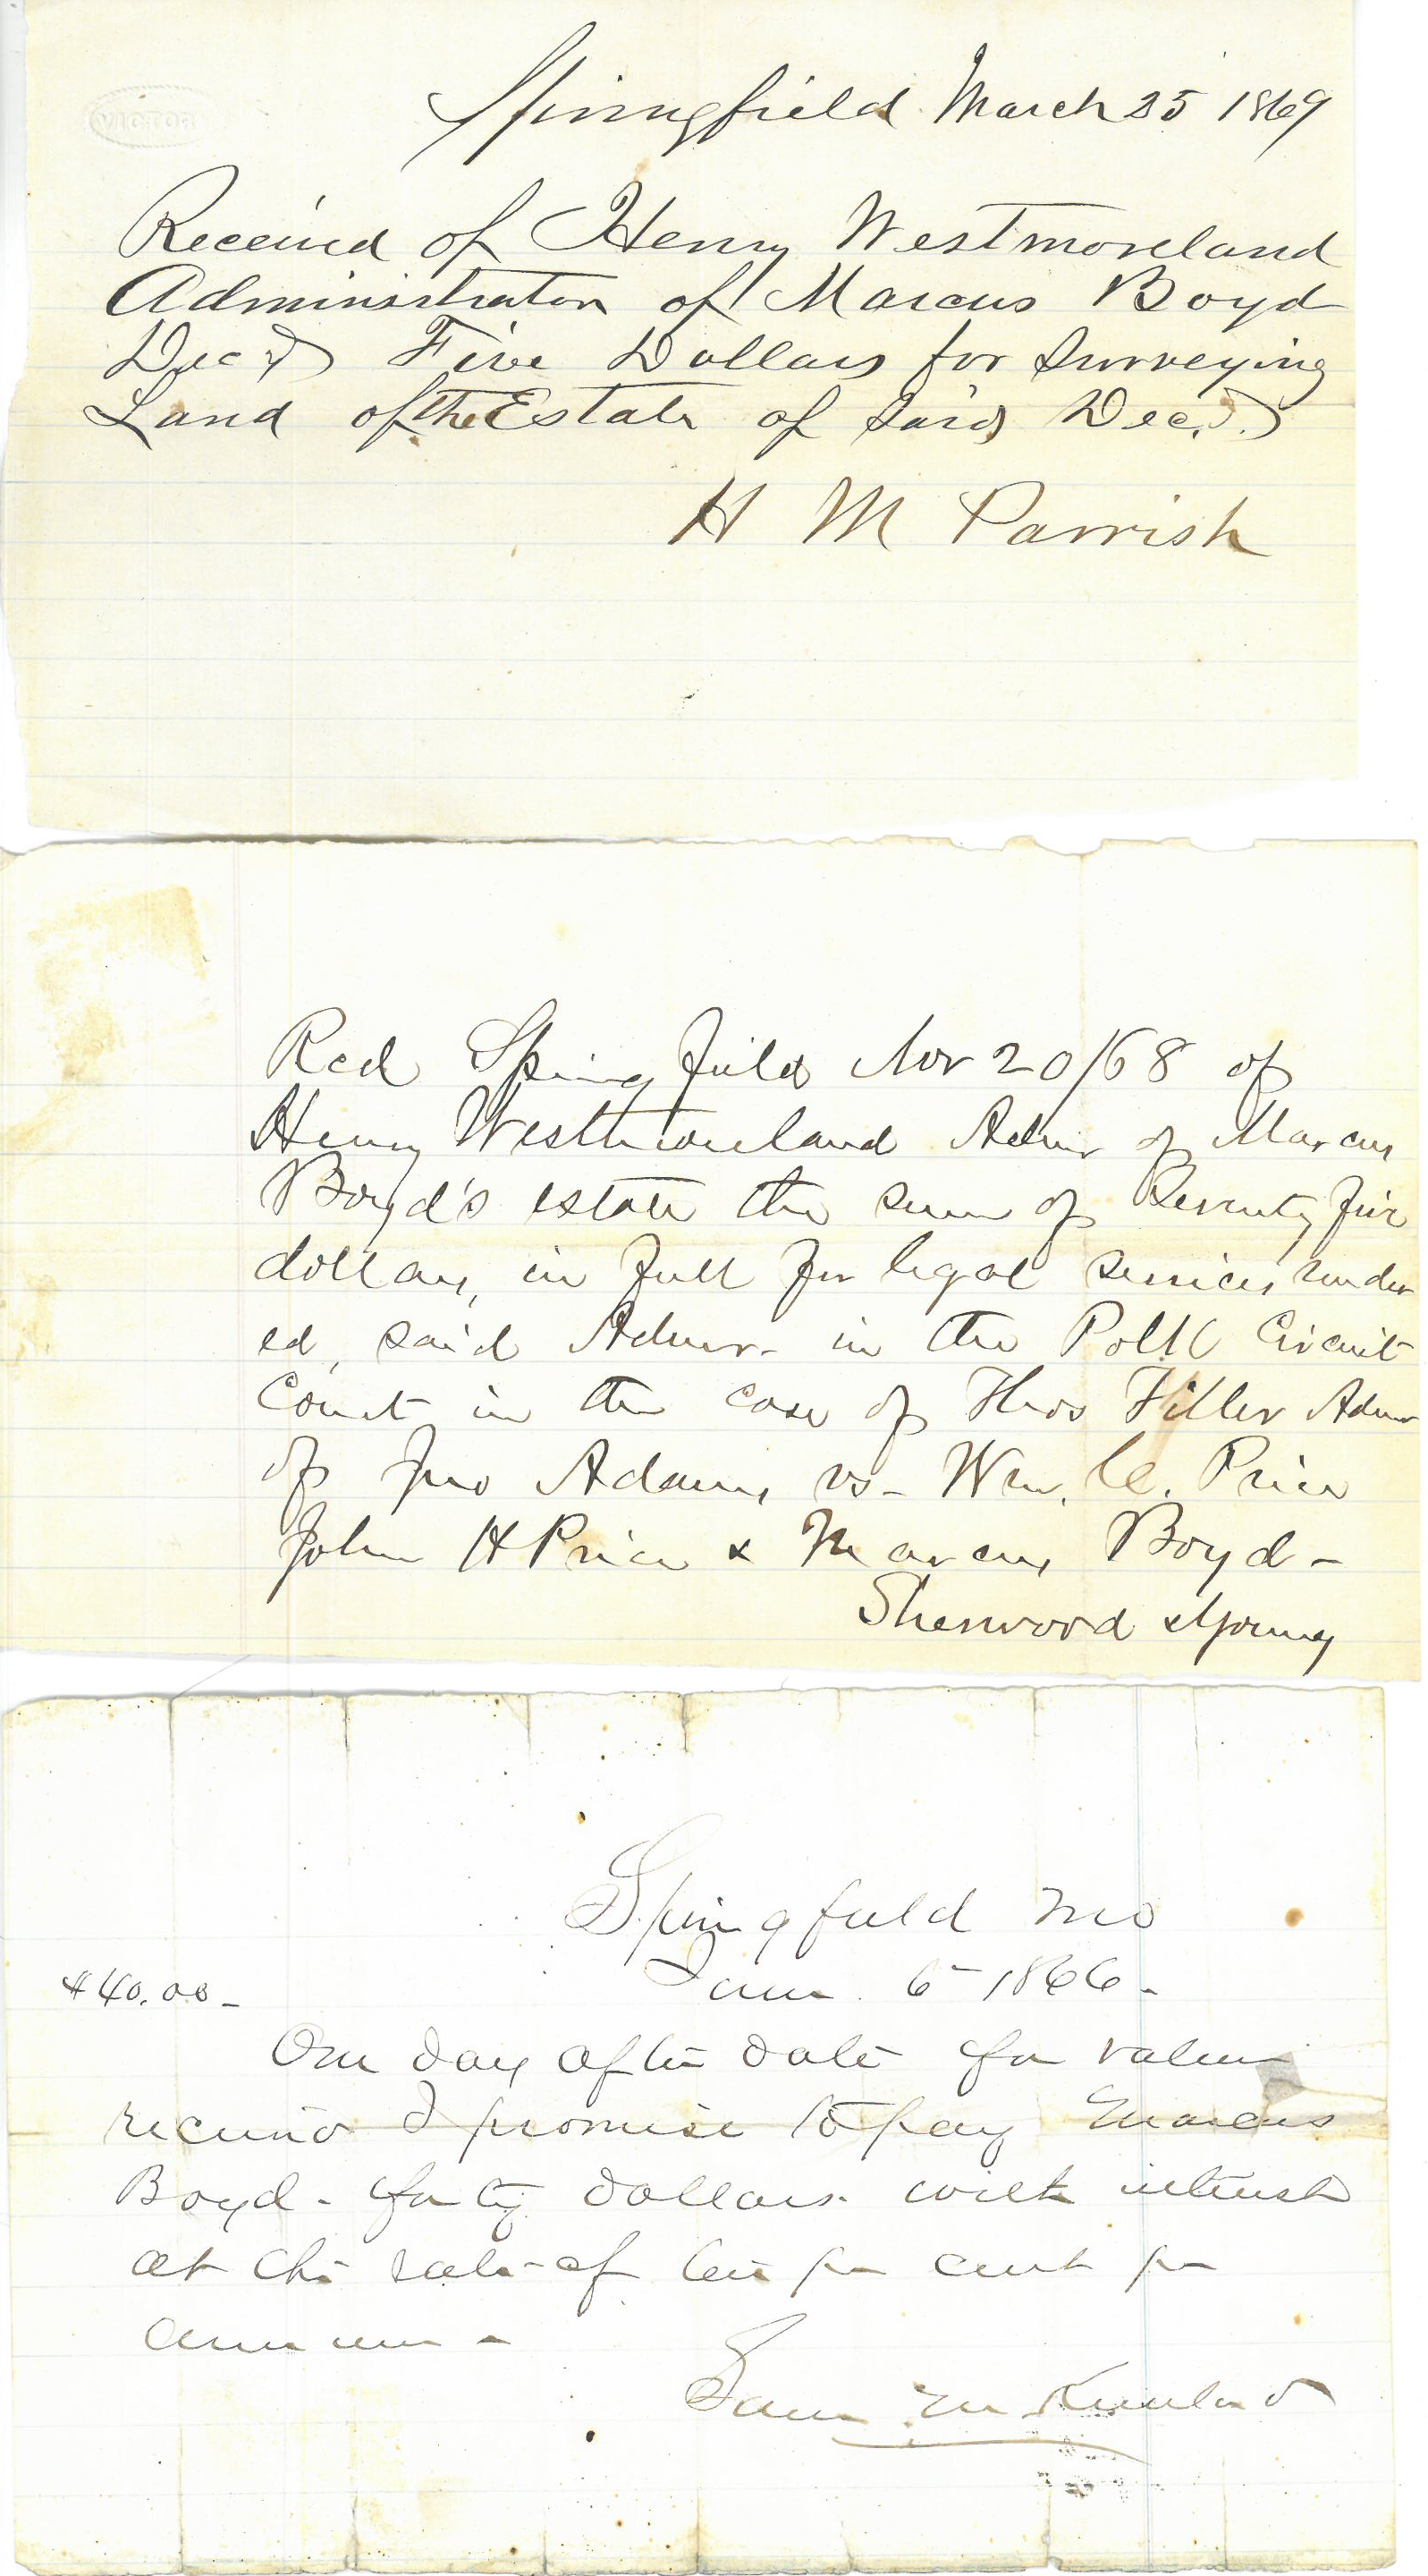 Springfield March 25 1869
Received of Henry Westmoreland
Administrator of Marcus Boyd
Decd Five Dollars for Surveying
Land of the Estate of Said Dec.d.
H M Parrish
Rcd Springfield Nov 20/68 of
Henry Westmoreland Admr of Marcus
Boyd's estate the sum of Seventy five
dollars, in full for legal services render
ed, said Admr. in the Polk Circuit
Court in the case of Thos Admr
of Jno Adams vs - Wm. C. Price
John H Price & Marcus Boyd -
Sherwood & Young
Springfield Mo
$40.00 - Jan. 6 1866 -
One day after date for value
received I promise to pay Marcus
Boyd - forty dollars. with interest
at the rate of ten per cent per
annum -
Sam